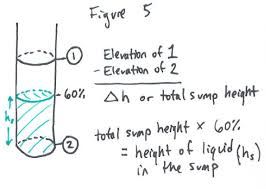 Figure 5
①
Elevation of 1
- Elevation of 2
60%
Δh or total sump height
hs
total sump height × 60%
= height of liquid (hs)
in the sump
②